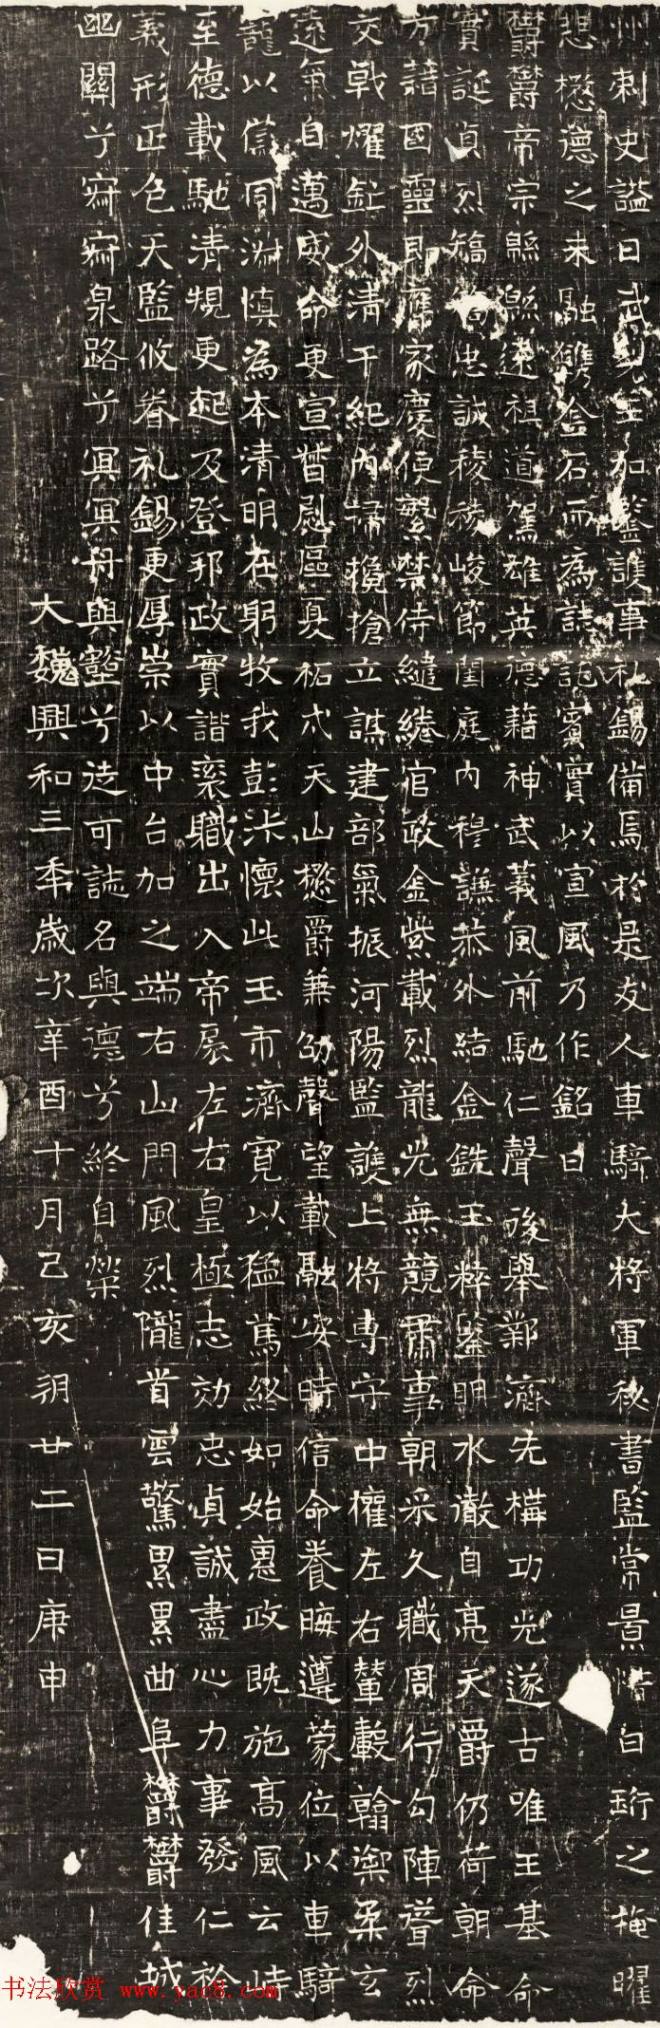 州刺史謚曰武□王加鑒護事礼錫備焉於是友人車騎大將軍秘書監常景惜白珩之掩曜
想楙德之未融鐫金石而為誌託賓實以宣風乃作銘曰
欝欝帝宗緜緜遠祖道駕雄英德藉神武義風前馳仁聲後舉鄴濟先構功光遂古唯王基命
實誕貞烈□□忠誠稜稜峻節閨庭內穆謙恭外結金銑玉粹鑒明水澈自亮天爵仍荷朝命
方藉國靈即應家慶便繁禁侍繾綣官政金紫載烈龍光無競肅事朝采久職周行勾陣膺烈
交戟燿釭外清干紀內掃欃槍立謀建部氣振河陽監護上將專守中權左右輦轂翰禦柔玄
遠氣自邁威命更宣晉慰區夏柘弋天山楙爵兼劭聲望載融安時信命養晦遵蒙位以車騎
龍以儀同淵慎為本清明在躬牧我彭沭懷此玉市濟寬以猛篤終如始惠政既施高風云恃
至德載馳清規更起及登邦政實諧衮職出入帝扆左右皇極志効忠貞誠盡心力事發仁於
義形正色天監攸眷礼錫更厚崇以中台加之端右山門風烈隴首雲驚累累曲阜欝欝佳城
幽關兮寂寂泉路兮冥冥舟與壑兮徒可誌名與德兮終自榮
大魏興和三年歲次辛酉十月己亥朔廿二日庚申
书法欣赏 www.yac8.com